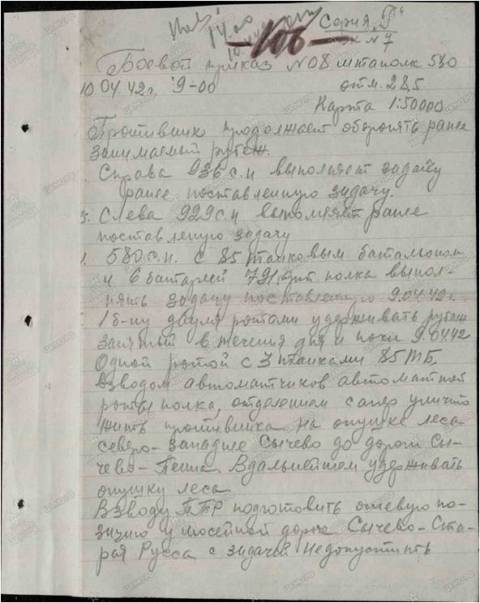 -106-
Серия "Г"
экз №7
Боевой приказ №08 штаполк 580
10.04.42г. 9-00 отм. 28,5
Карта 1:50000
Противник продолжает оборонять ранее
занимаемый рубеж.
Справа 936 с.п выполняет задачу
ранее поставленную задачу.
Слева 929 с.п выполняет ранее
поставленую задачу
580 с.п. с 85 танковым батальоном
и 6 батареей 791 арт полка выпол-
нять задачу поставленную 9.04.42г.
1 б-ну двумя ротами удерживать рубеж
занятый в течения дня и ночи 9.04.42
Одной ротой с 3 танками 85 ТБ
взводом автоматчиков автоматной
роты полка, отделением сапер уничто
жить противника на опушке леса
северо-западнее Сычево до дороги Сы-
чево-Пенна. Вдальнейшем удерживать
опушку леса
Взводу ПТР подготовить огневую по-
зицию у шосейной дороги Сычево-Ста-
рая Русса с задачей недопустить